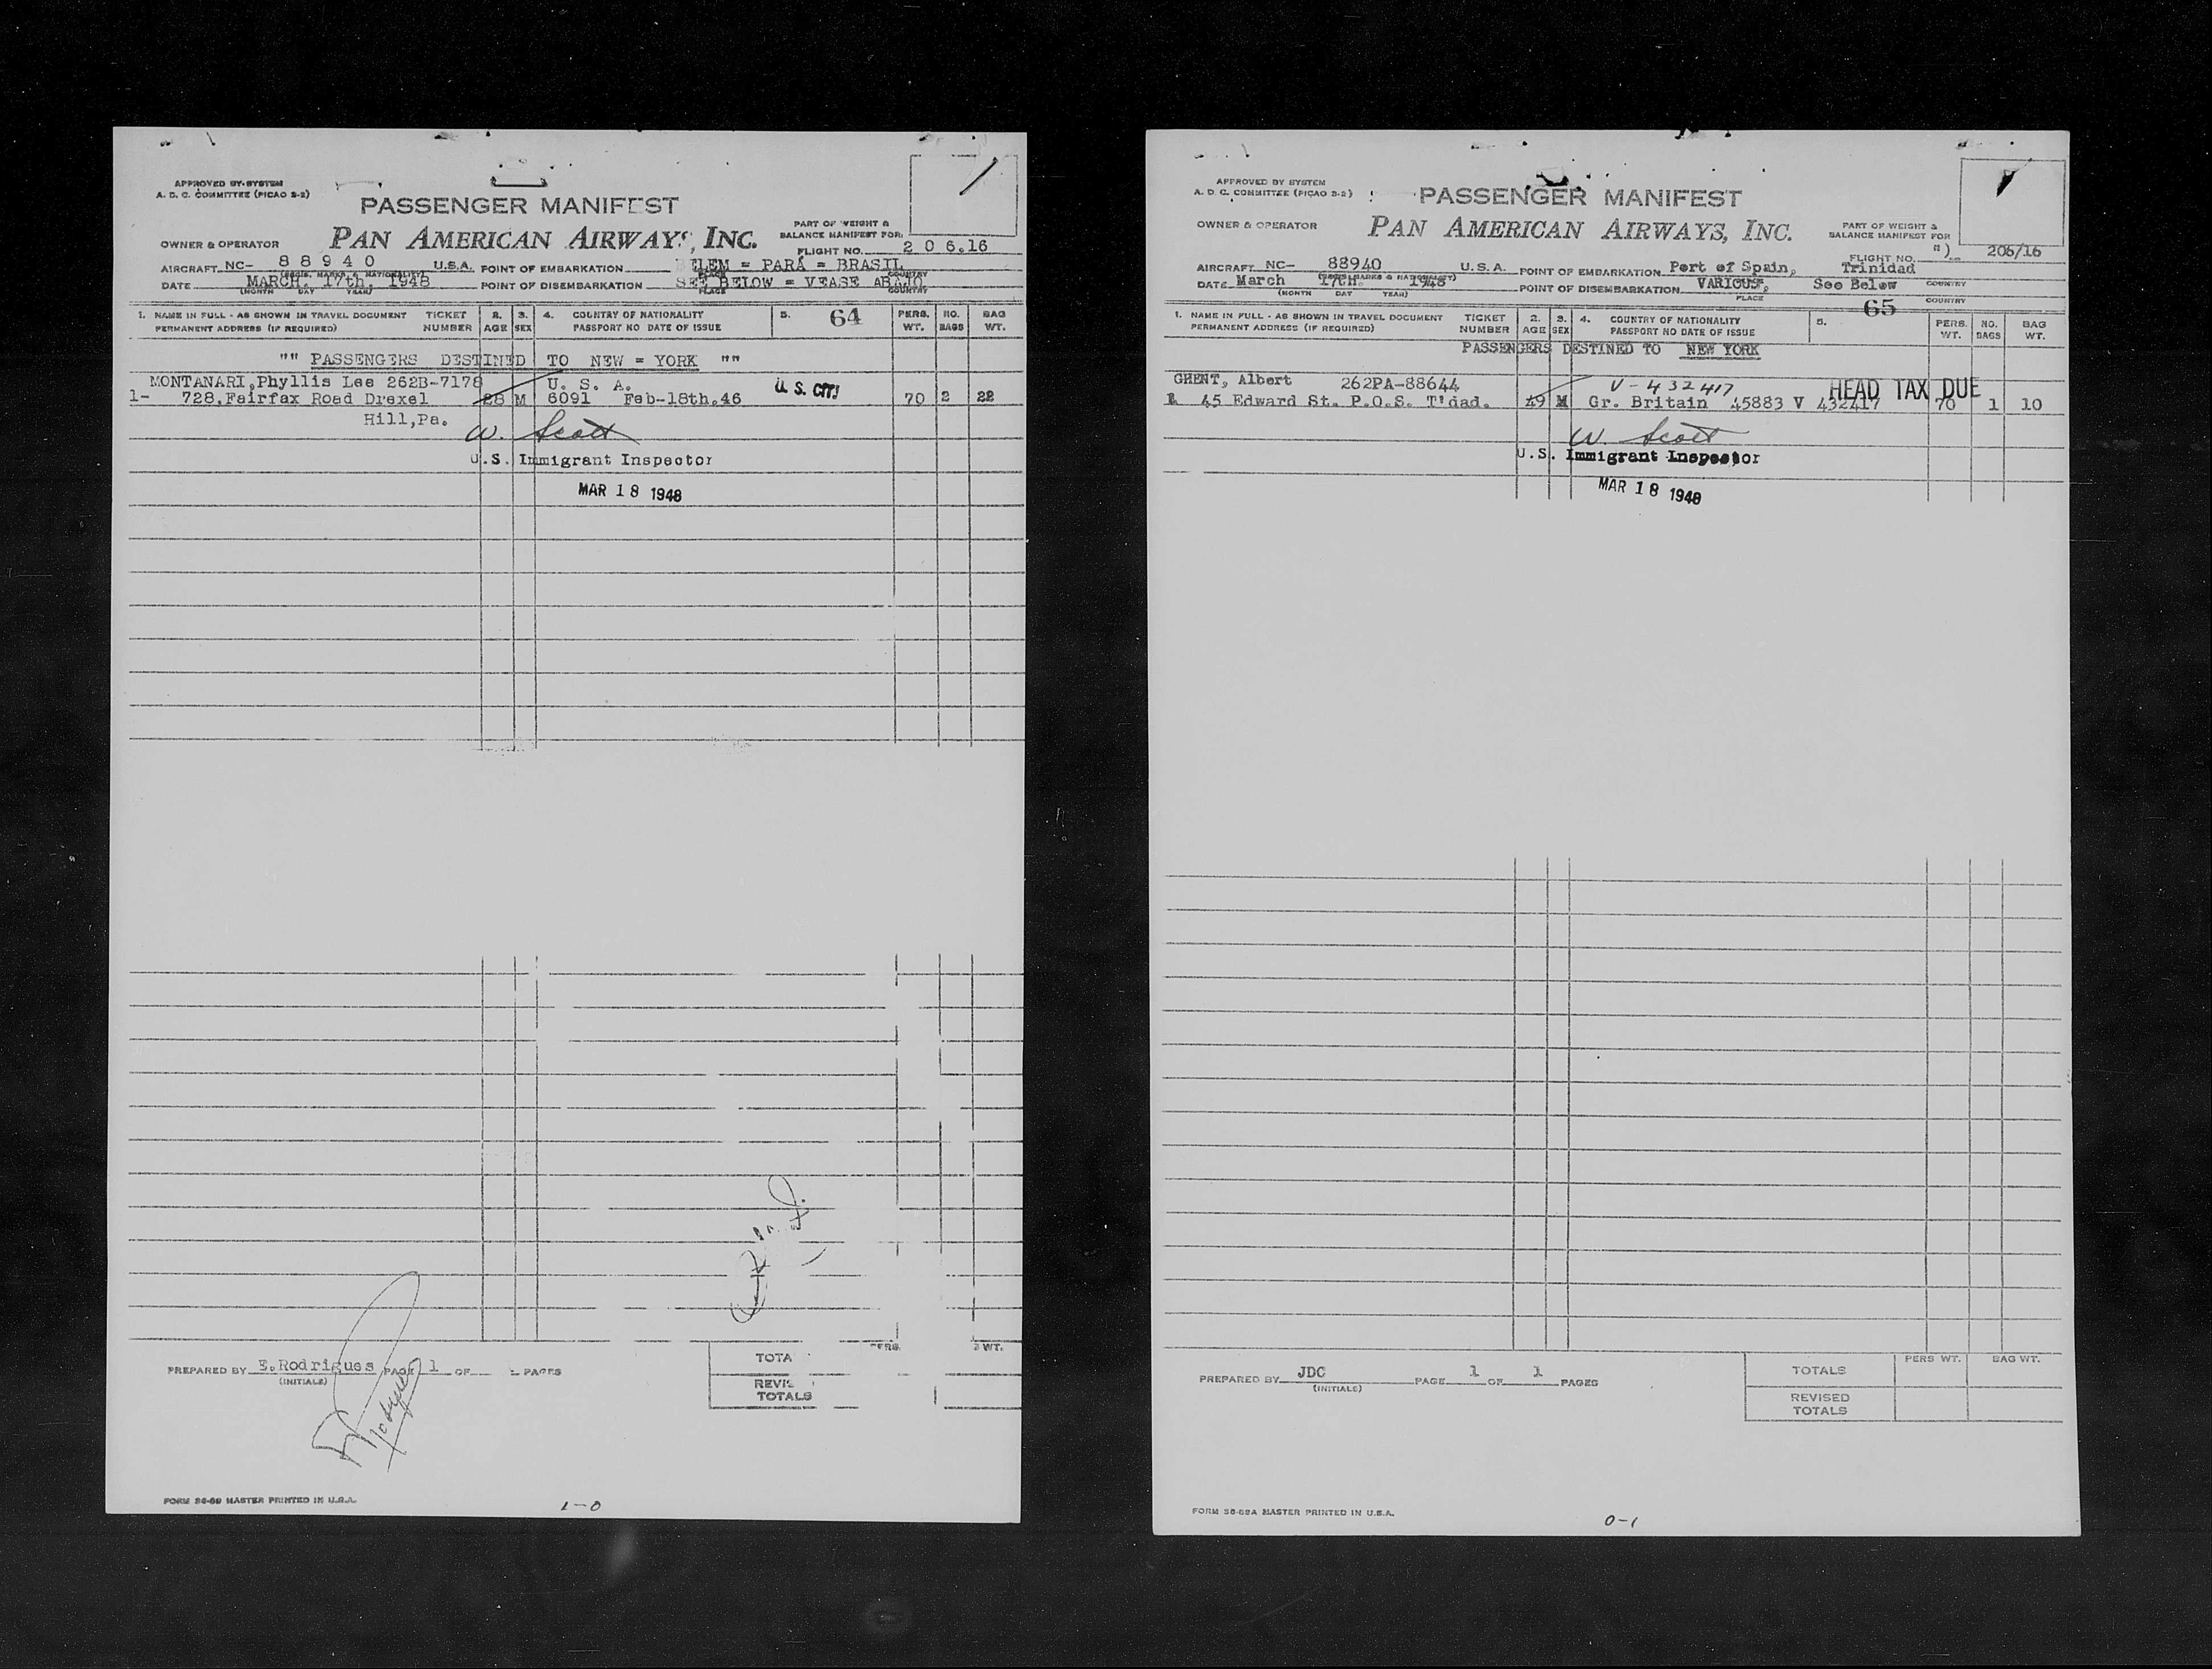 APPROVED BY SYSTEM
A. D. C. COMMITTEE (PICAO S-2)
PASSENGER MANIFEST
OWNER & OPERATOR PAN AMERICAN AIRWAYS, INC.
PART OF WEIGHT &
BALANCE MANIFEST FOR:
FLIGHT NO. 2 0 6.16
AIRCRAFT NC- 8 8 9 4 0 U.S.A. POINT OF EMBARKATION BELEM = PARÁ = BRASIL
DATE MARCH. 17th. 1948 POINT OF DISEMBARKATION SEE BELOW = VEASE ABAJO
(MONTH DAY YEAR) PLACE COUNTRY
1. NAME IN FULL - AS SHOWN IN TRAVEL DOCUMENT TICKET 2. 3. 4. COUNTRY OF NATIONALITY 5. 64 PERS. NO. BAG
PERMANENT ADDRESS (IF REQUIRED) NUMBER AGE SEX PASSPORT NO DATE OF ISSUE WT. BAGS WT.
"" PASSENGERS DESTINED TO NEW = YORK ""
MONTANARI,Phyllis Lee 262B-7178 U. S. A. U. S. CIT.
1- 728.Fairfax Road Drexel 28 M 6091 Feb-18th.46 70 2 22
Hill,Pa.
W. Scott
U.S. Immigrant Inspector
MAR 18 1948
PREPARED BY E.Rodrigues PAGE 1 OF PAGES
(INITIALS)
TOTA
REVIS
TOTALS
PERS WT.
Rodrigues
FORM S6-89 MASTER PRINTED IN U.S.A.
1-0
APPROVED BY SYSTEM
A. D. C. COMMITTEE (PICAO S-2)
PASSENGER MANIFEST
OWNER & OPERATOR PAN AMERICAN AIRWAYS, INC.
PART OF WEIGHT &
BALANCE MANIFEST FOR
FLIGHT NO. 206/16
AIRCRAFT NC- 88940 U.S.A. POINT OF EMBARKATION Port of Spain, Trinidad
DATE March 17th. 1948 POINT OF DISEMBARKATION VARIOUS, See Below
(MONTH DAY YEAR) PLACE COUNTRY
1. NAME IN FULL - AS SHOWN IN TRAVEL DOCUMENT TICKET 2. 3. 4. COUNTRY OF NATIONALITY 5. 65 PERS. NO. BAG
PERMANENT ADDRESS (IF REQUIRED) NUMBER AGE SEX PASSPORT NO DATE OF ISSUE WT. BAGS WT.
PASSENGERS DESTINED TO NEW YORK
GHENT, Albert 262PA-88644 V-432417 HEAD TAX DUE
1. 45 Edward St. P.O.S. T'dad. 49 M Gr. Britain 45883 V 432417 70 1 10
W Scott
U.S. Immigrant Inspector
MAR 18 1948
PREPARED BY JDC PAGE 1 OF 1 PAGES
(INITIALS)
PERS WT. BAG WT.
TOTALS
REVISED
TOTALS
FORM S6-89A MASTER PRINTED IN U.S.A.
0-1